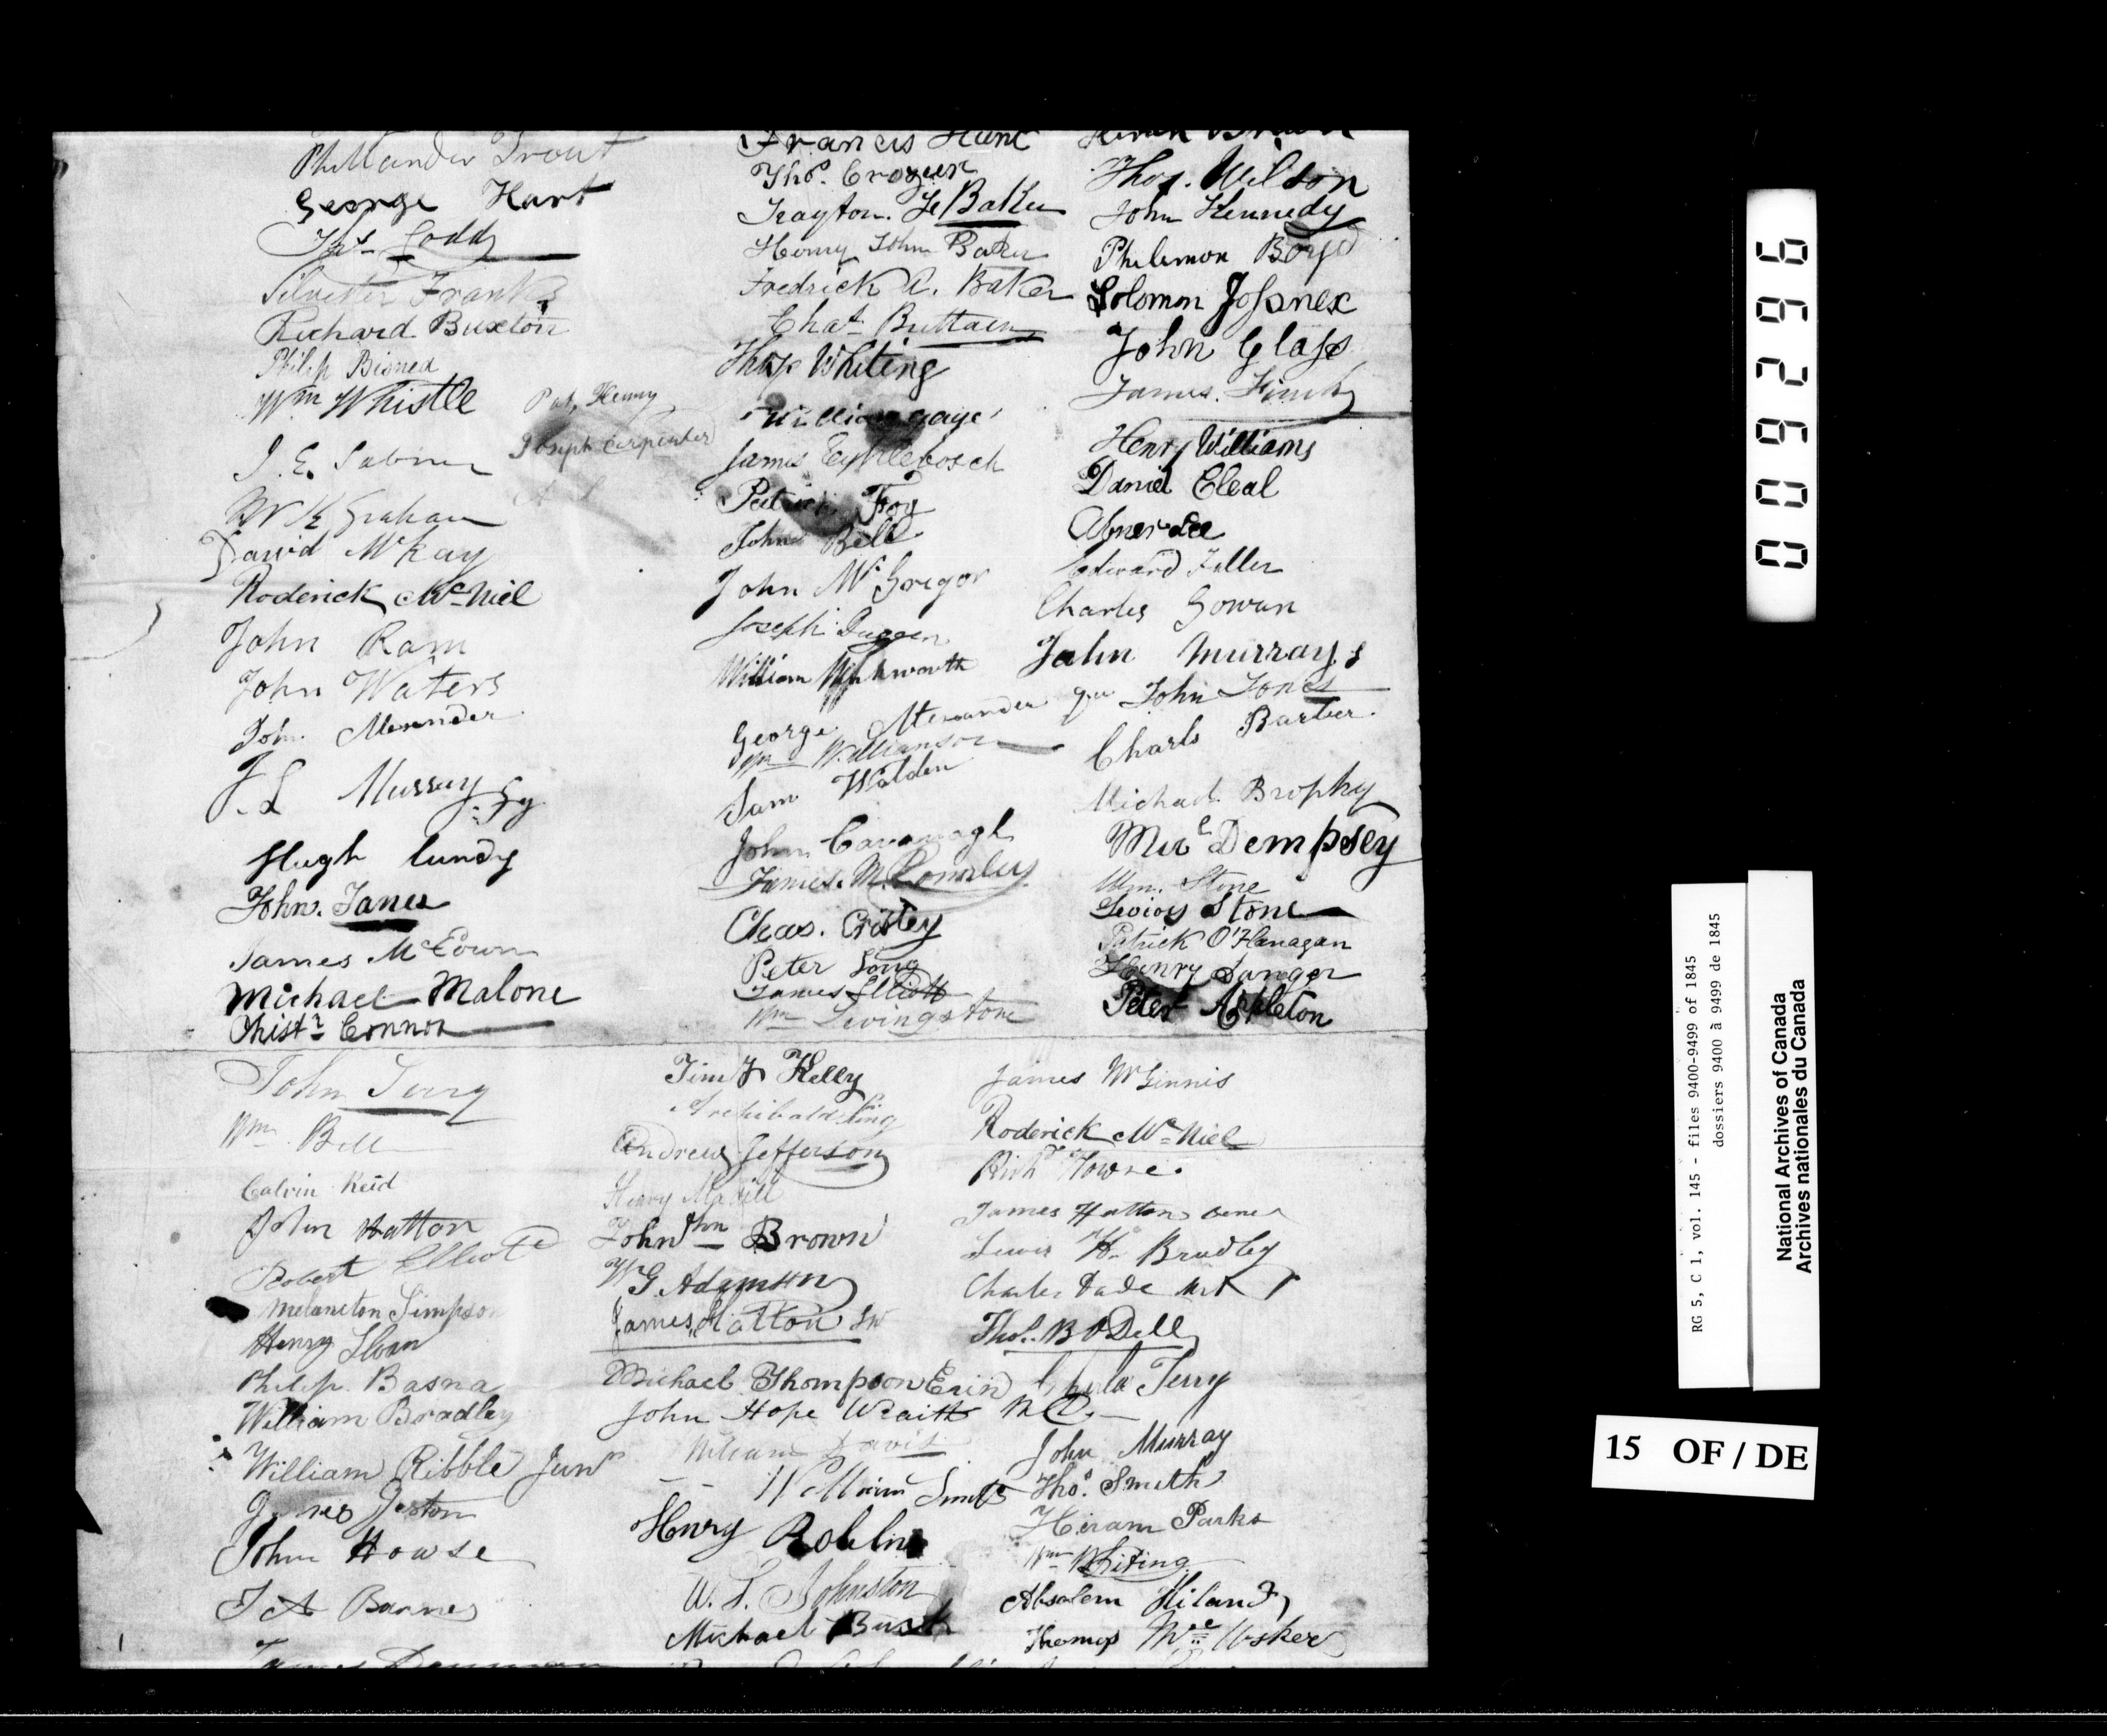 Phillander Trout
George Hart
Thos Codd
Silvester Franks
Richard Buxton
Philip Bisned
Wm Whistle
Pat, Henny
Joseph Carpenter
J. E. Sabin
W K Graham
David McKay
Roderick McNiel
John Ram
John Waters
John
J. L Murray
Hugh Lundy
John. Janes
James McEown
Michael Malone
Christr Connor
Francis Hunt
Thos. Crozier
Trayton. Le Baker
Henry John Baker
Fredrick A. Baker
Chas Brittain
Thos Whiting
William gage
James
Patrick Foy
John Bell
John McGregor
Joseph Duggen
William
George Alexander
Wm Williamson
Sam Walden
John Cavanagh
James. McConnley
Chas. Cristey
Peter Long
James Elliott
Wm Livingstone
Thos. Wilson
John Kennedy
Philemon Boyd
Solomon
John Glass
James. Finch
Henry Williams
Daniel Cleal
Abner Lee
Edward Filler
Charles Gowan
John Murray
John Jones
Charls Barber.
Michael Brophy
Micl Dempsey
Wm. Stone
Stone
Patrick O'Flanagan
Henry Sanger
Peter Appleton
John Terry
Wm Bell
Calvin Reid
John Hatton
Robert Elliott
Melancton Simpson
Henry Sloan
Philip. Basna
William Bradley
William Ribble Junr
James Jeston
John Howse
J A Barnes
James
Timy Kelly
Archibald King
Andrew Jefferson
Henry
Johnthn Brown
W G. Adamson
James Hatton Snr
Michael Thompson Erin
John Hope Wraith M D.
William Davis
William Smith
Henry
W. S. Johnston
Michael Bush
James McGinnis
Roderick McNiel
Richd Howse.
James Hatton
Lewis H. Bradley
Charles Dade
Thos. B ODell
Terry
John Murray
Thos. Smith
Hiram Parks
Wm Whiting
Absalem Hiland
Thomas McUsker
009296
RG 5, C 1, vol. 145 - files 9400-9499 of 1845
dossiers 9400 à 9499 de 1845
National Archives of Canada
Archives nationales du Canada
15 OF / DE